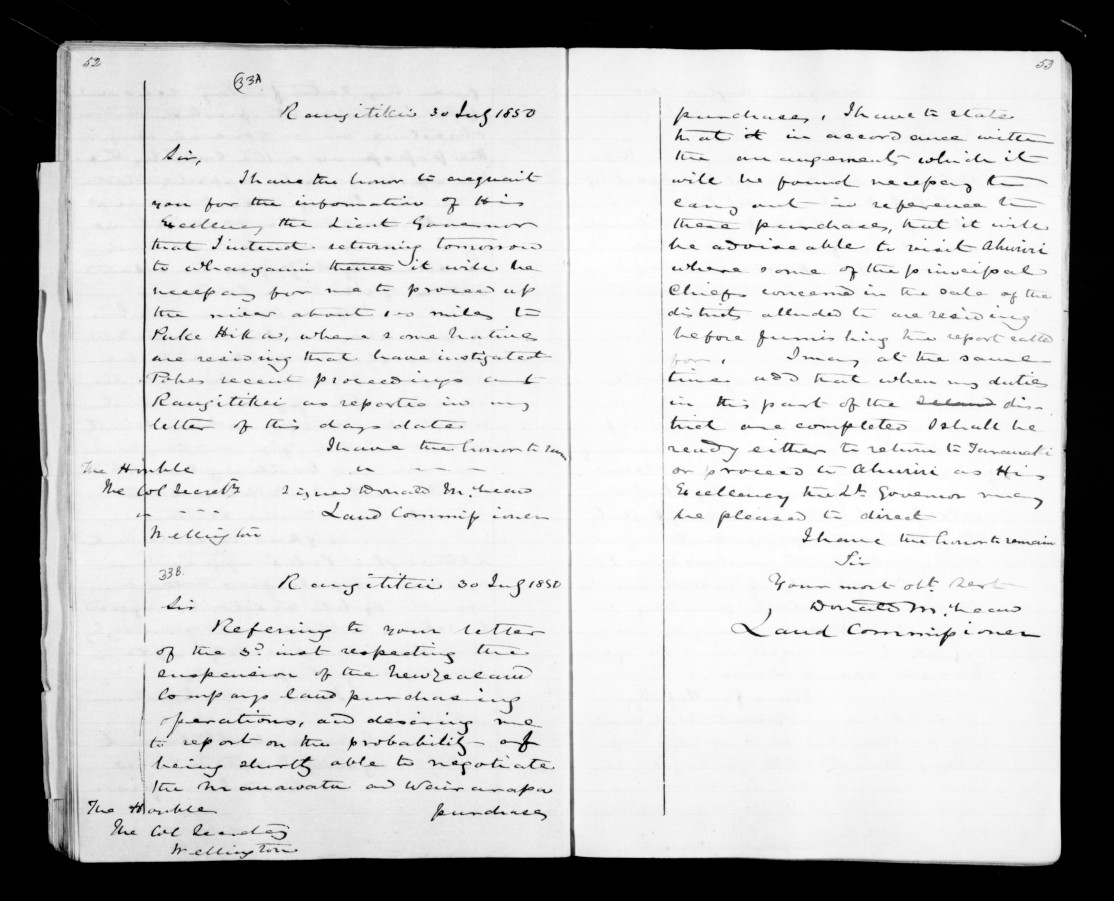 52
33A
Rangitikei 30 July 1850
Sir,
I have the honor to acquaint
you for the information of His
Excellency the Lieut Governor
that I intend returning tomorrow
to Whanganui thence it will be
necessary for me to proceed up
the river about 100 miles to
Puke Hika, where some natives
are residing that have instigated
Pakes recent proceedings at
Rangitikei as reported in my
letter of this days date
I have the honor to
The Honble
The Col Secrety Signed Donald McLean
Land Commissioner
Wellington
33B
Rangitikei 30 July 1850
Sir
Referring to your letter
of the 3d. inst respecting the
suspension of the New Zealand
Companys land purchasing
operations, and desiring me
to report on the probability of
being shortly able to negotiate
the Manawatu and Wairarapa
The Honble purchases
The Col Secretary
Wellington
53
purchases, I have to state
that in accordance with
the arrangements which it
will be found necessary to
carry out in reference to
these purchases, that it will
be adviseable to visit Ahuriri
where some of the principal
Chiefs concerned in the sale of the
districts alluded to are residing
before furnishing the report called
for. I may at the same
time add that when my duties
in this part of the Island dis-
trict are completed I shall be
ready either to return to Taranaki
or proceed to Ahuriri as His
Excellency the Lt. Governor may
be pleased to direct
I have the honor to remain
Sir
Your most obt. Servt
Donald McLean
Land Commissioner